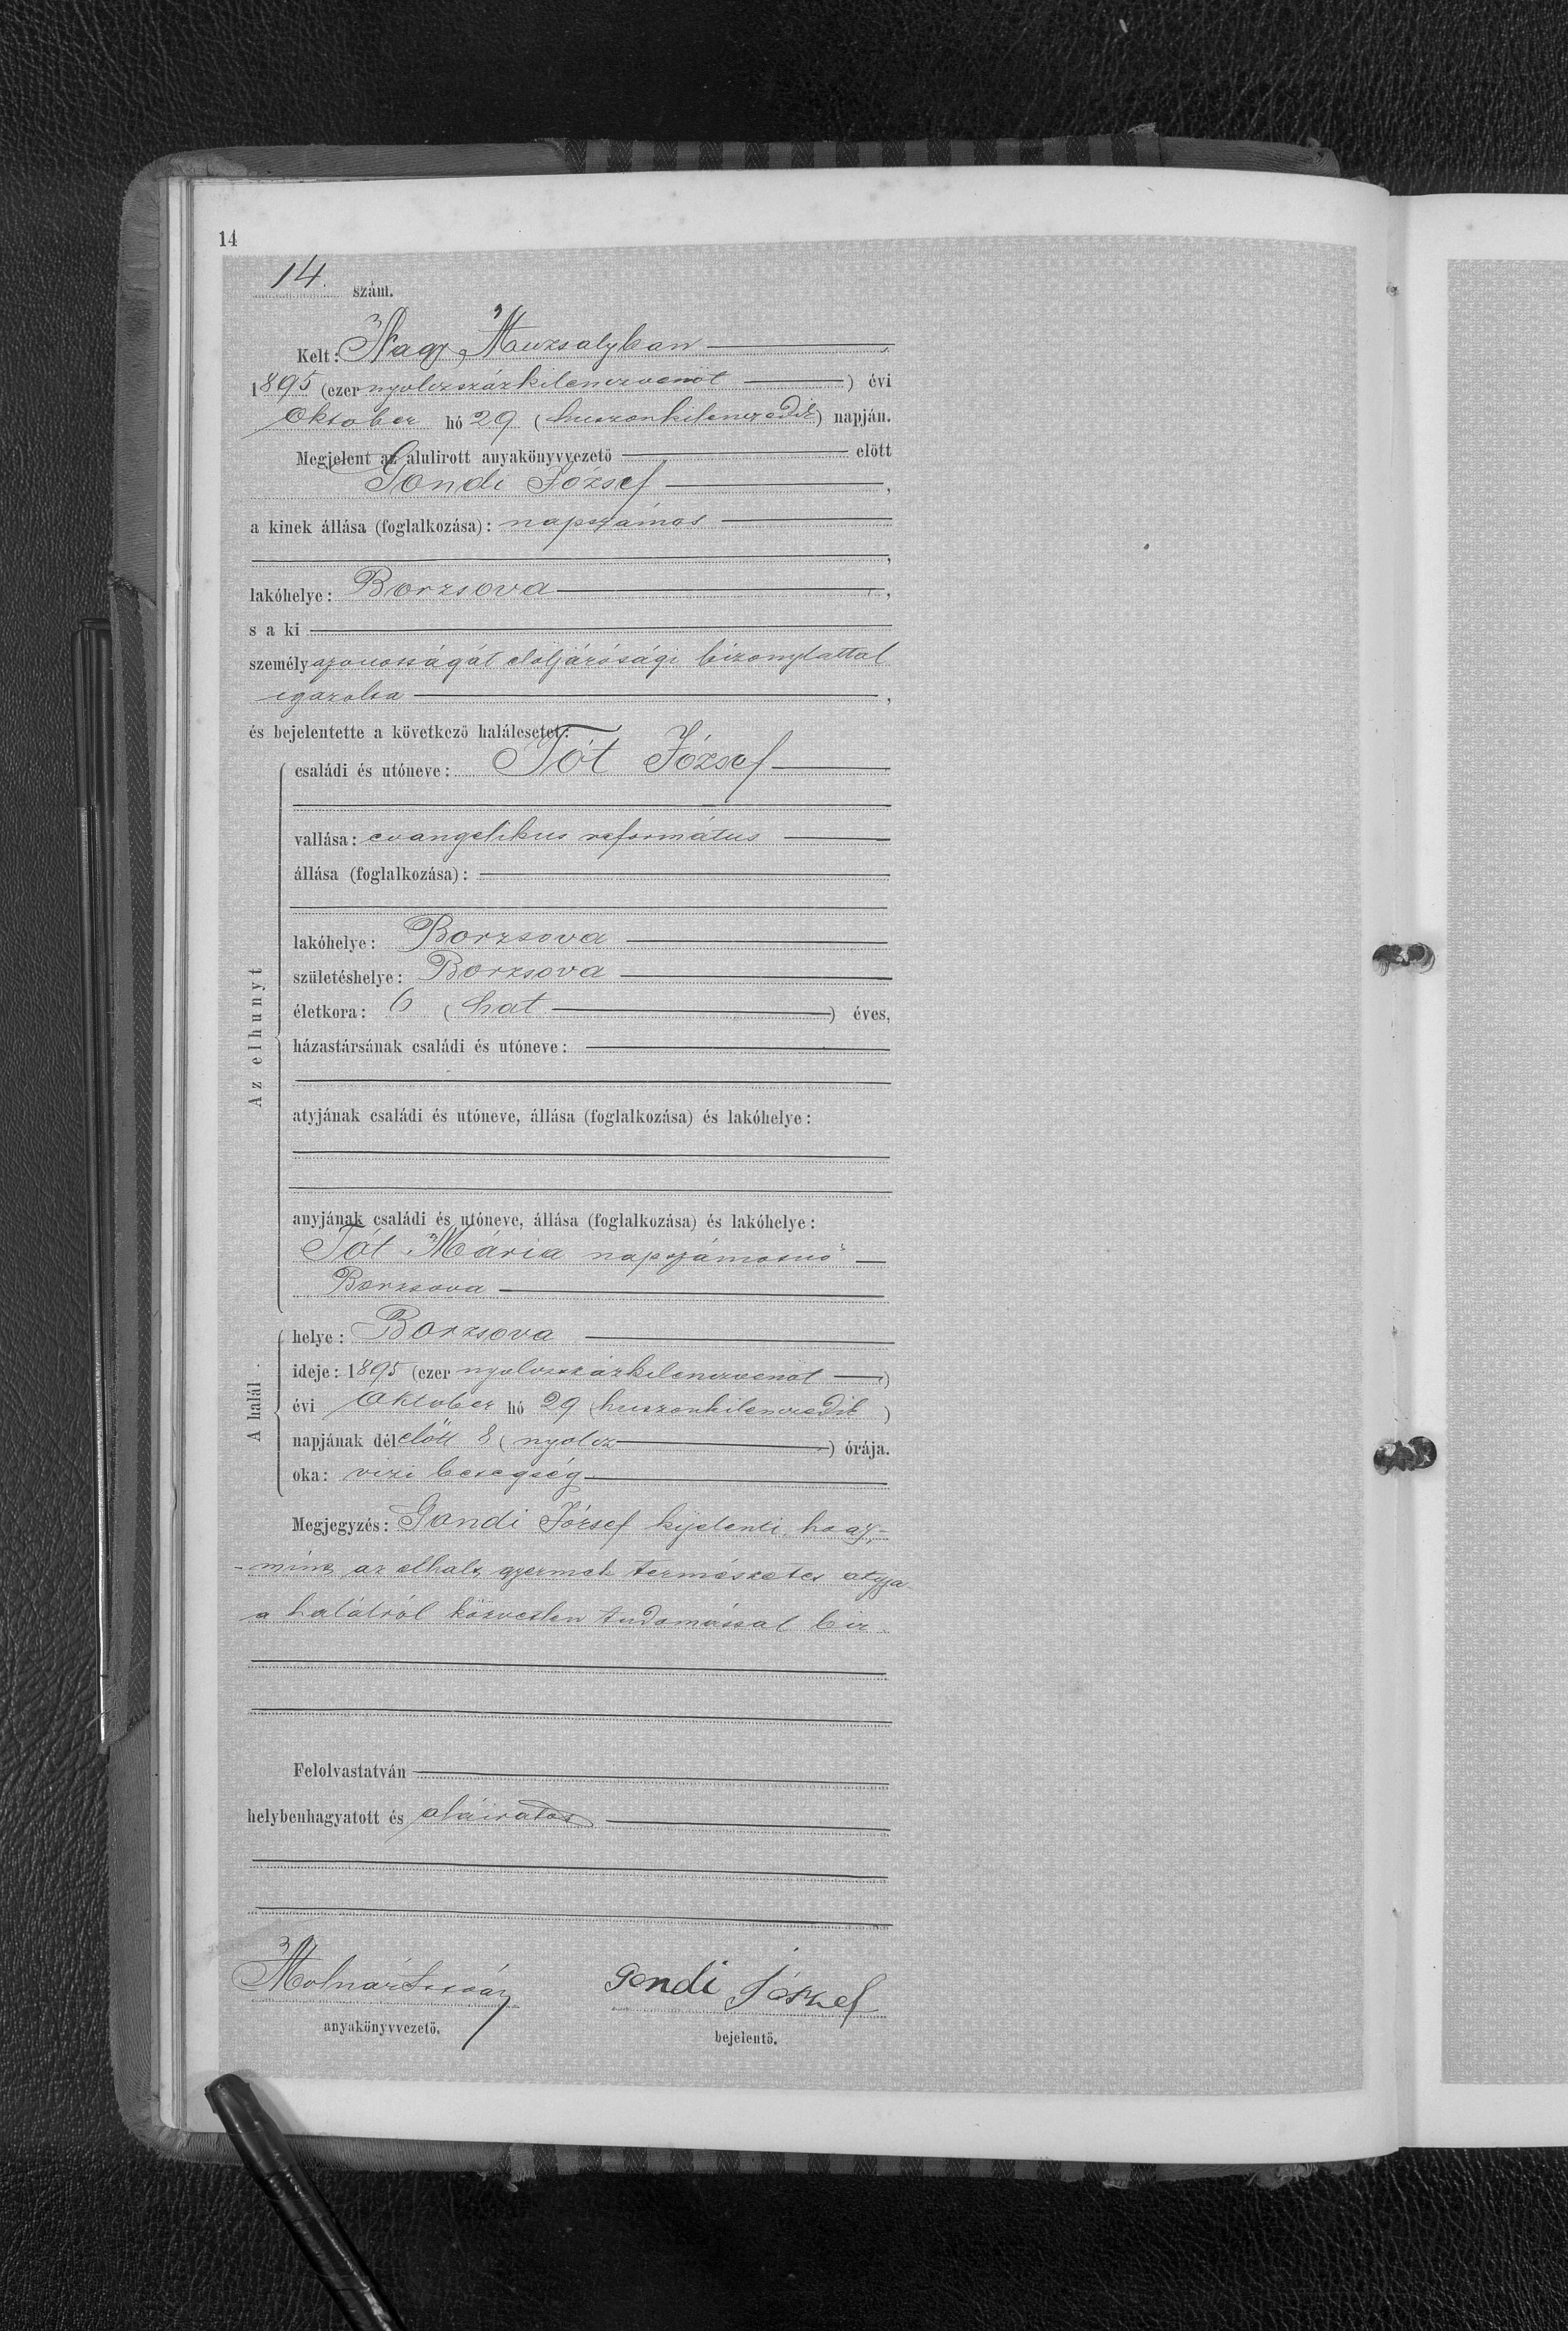 14
14. szám.
Kelt: Nagy Muzsalyban
1895 (ezer nyolczszázkilenczvenöt) évi
Oktober hó 29 (huszonkilenczedik) napján.
Megjelent az alulirott anyakönyvvezető előtt
Gondi József,
a kinek állása (foglalkozása): napszámos
lakóhelye: Borzsova,
s a ki
személyazonosságát elöljárósági bizonylattal
igazolta,
és bejelentette a következő halálesetet:
Az elhunyt
családi és utóneve: Tót József
vallása: evangelikus református
állása (foglalkozása):
lakóhelye: Borzsova
születéshelye: Borzsova
életkora: 6 (hat) éves,
házastársának családi és utóneve:
atyjának családi és utóneve, állása (foglalkozása) és lakóhelye:
anyjának családi és utóneve, állása (foglalkozása) és lakóhelye:
Tót Mária napszámosnő
Borzsova
A halál
helye: Borzsova
ideje: 1895 (ezer nyolczszázkilenczvenöt)
évi Oktober hó 29 (huszonkilenczedik)
napjának délelőtt 8 (nyolcz) órája.
oka: vizi betegség
Megjegyzés: Gondi József kijelenti, hogy
mint az elhalt gyermek természetes atyja
a halálról közvetlen tudomással bir.
Felolvastatván
helybenhagyatott és aláiratott
Molnár István
Gondi József
anyakönyvvezető.
bejelentő.